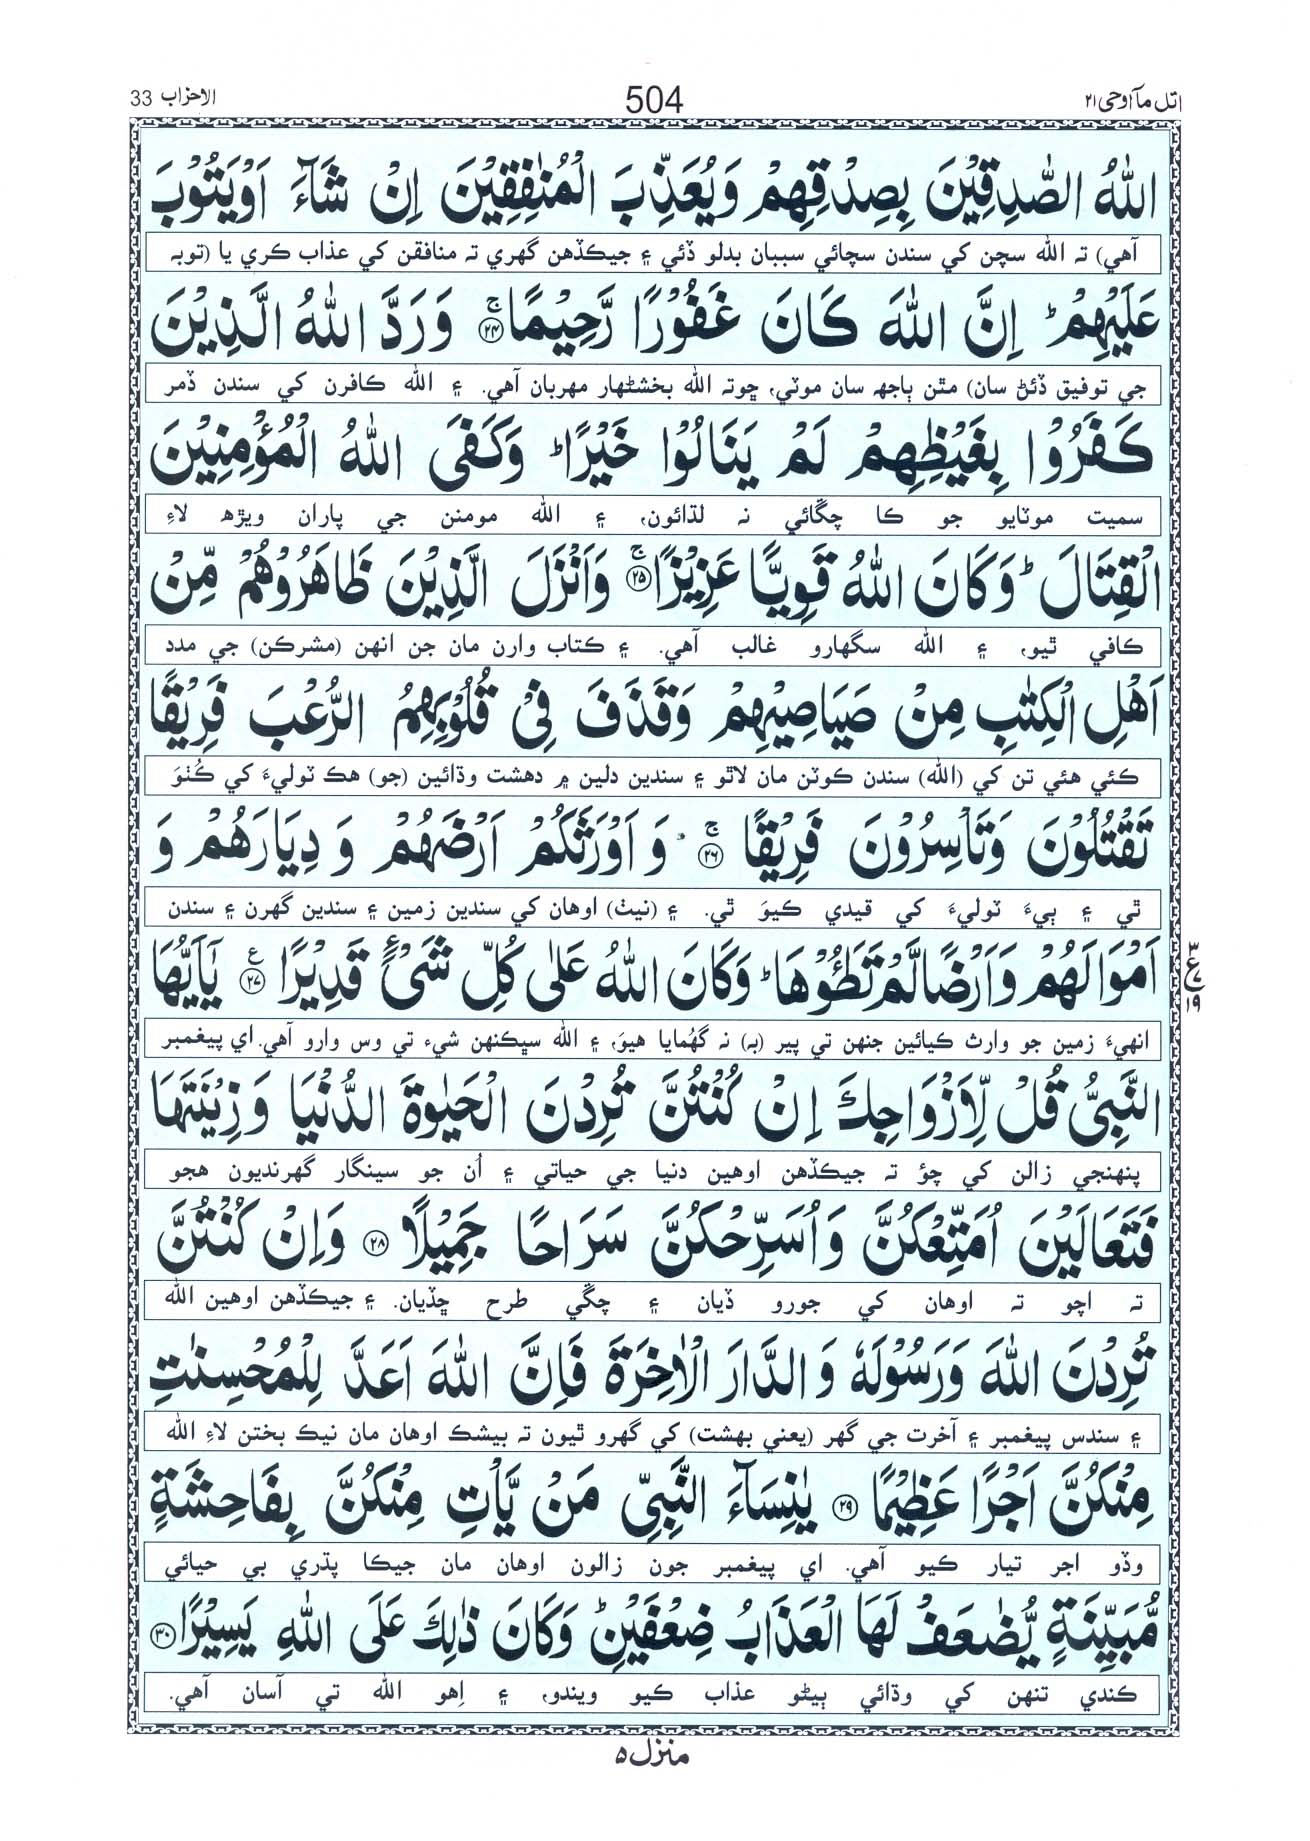 اتل مآ اوحی ۲۱
504
الاحزاب 33
اللّٰهُ الصّٰدِقِيْنَ بِصِدْقِهِمْ وَيُعَذِّبَ الْمُنٰفِقِيْنَ اِنْ شَآءَ اَوْيَتُوْبَ
آهي) ته الله سچن کي سندن سچائي سببان بدلو ڏئي ۽ جيڪڏهن گهري ته منافقن کي عذاب ڪري يا (توبہ
عَلَيْهِمْ ؕ اِنَّ اللّٰهَ كَانَ غَفُوْرًا رَّحِيْمًا ۚ۲۴ وَرَدَّ اللّٰهُ الَّذِيْنَ
جي توفيق ڏئڻ سان) مٿن ٻاجهہ سان موٽي، ڇوتہ الله بخشڻهار مهربان آهي. ۽ الله ڪافرن کي سندن ڏمر
كَفَرُوْا بِغَيْظِهِمْ لَمْ يَنَالُوْا خَيْرًا ؕ وَكَفَى اللّٰهُ الْمُؤْمِنِيْنَ
سميت موٽايو جو ڪا چڱائي نہ لڌائون، ۽ الله مومنن جي پاران ويڙهہ لاءِ
الْقِتَالَ ؕ وَكَانَ اللّٰهُ قَوِيًّا عَزِيْزًا ۚ۲۵ وَاَنْزَلَ الَّذِيْنَ ظَاهَرُوْهُمْ مِّنْ
ڪافي ٿيو، ۽ الله سگهارو غالب آهي. ۽ ڪتاب وارن مان جن انهن (مشرڪن) جي مدد
اَهْلِ الْكِتٰبِ مِنْ صَيَاصِيْهِمْ وَقَذَفَ فِيْ قُلُوْبِهِمُ الرُّعْبَ فَرِيْقًا
ڪئي هئي تن کي (الله) سندن ڪوٽن مان لاٿو ۽ سندين دلين ۾ دهشت وڌائين (جو) هڪ ٽوليءَ کي ڪُٺوَ
تَقْتُلُوْنَ وَتَاْسِرُوْنَ فَرِيْقًا ۚ۲۶ وَ اَوْرَثَكُمْ اَرْضَهُمْ وَ دِيَارَهُمْ وَ
ٿي ۽ ٻيءَ ٽوليءَ کي قيدي ڪيوَ ٿي. ۽ (نيٺ) اوهان کي سندين زمين ۽ سندين گهرن ۽ سندن
اَمْوَالَهُمْ وَاَرْضًا لَّمْ تَطَـُٔوْهَا ؕ وَكَانَ اللّٰهُ عَلٰى كُلِّ شَيْءٍ قَدِيْرًا ۲۷ يٰٓاَيُّهَا
انهيءَ زمين جو وارث ڪيائين جنهن تي پير (بہ) نہ گهُمايا هيوَ، ۽ الله سڀڪنهن شيء تي وس وارو آهي. اي پيغمبر
النَّبِيُّ قُلْ لِّاَزْوَاجِكَ اِنْ كُنْتُنَّ تُرِدْنَ الْحَيٰوةَ الدُّنْيَا وَ زِيْنَتَهَا
پنهنجي زالن کي چؤ تہ جيڪڏهن اوهين دنيا جي حياتي ۽ اُن جو سينگار گهرنديون هجو
فَتَعَالَيْنَ اُمَتِّعْكُنَّ وَاُسَرِّحْكُنَّ سَرَاحًا جَمِيْلًا ۲۸ وَاِنْ كُنْتُنَّ
تہ اچو تہ اوهان کي جورو ڏيان ۽ چڱي طرح ڇڏيان. ۽ جيڪڏهن اوهين الله
تُرِدْنَ اللّٰهَ وَرَسُوْلَهٗ وَ الدَّارَ الْاٰخِرَةَ فَاِنَّ اللّٰهَ اَعَدَّ لِلْمُحْسِنٰتِ
۽ سندس پيغمبر ۽ آخرت جي گهر (يعني بهشت) کي گهرو ٿيون تہ بيشڪ اوهان مان نيڪ بختن لاءِ الله
مِنْكُنَّ اَجْرًا عَظِيْمًا ۲۹ يٰنِسَآءَ النَّبِيِّ مَنْ يَّاْتِ مِنْكُنَّ بِفَاحِشَةٍ
وڏو اجر تيار ڪيو آهي. اي پيغمبر جون زالون اوهان مان جيڪا پڌري بي حيائي
مُّبَيِّنَةٍ يُّضٰعَفْ لَهَا الْعَذَابُ ضِعْفَيْنِ ؕ وَكَانَ ذٰلِكَ عَلَى اللّٰهِ يَسِيْرًا ۳۰
ڪندي تنهن کي وڌائي ٻيڻو عذاب ڪيو ويندو، ۽ اِهو الله تي آسان آهي.
منزل ۵